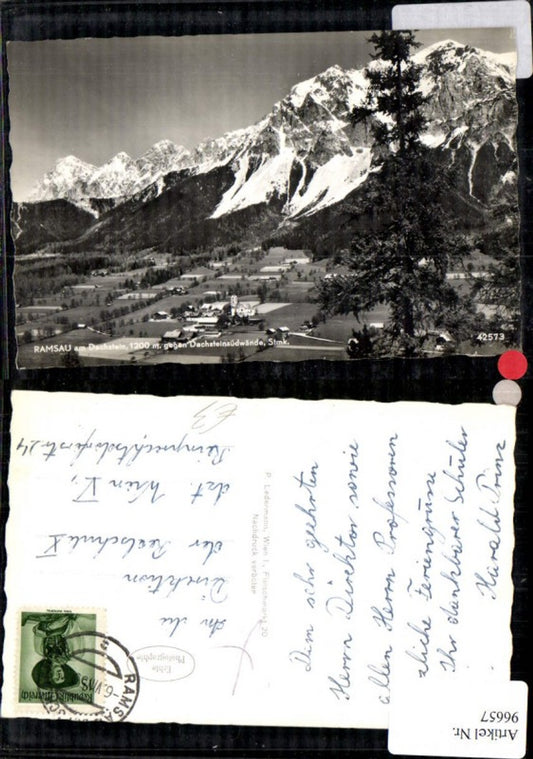 RAMSAU am Dachstein, 1200 m, gegen Dachsteinsüdwände, Stmk.
42573
Dem sehr geehrten
Herrn Direktor sowie
allen Herrn Professoren
Feriengrüsse
Ihr dankbarer Schüler
Harald Prinz
P. Ledermann, Wien I, Fleischmarkt 20
Nachdruck verboten
Echte
Photographie
An die
Direktion
der Realschule X
dzt. Wien V,
24
RAMSAU
Republik Österreich
Artikel Nr.
96657